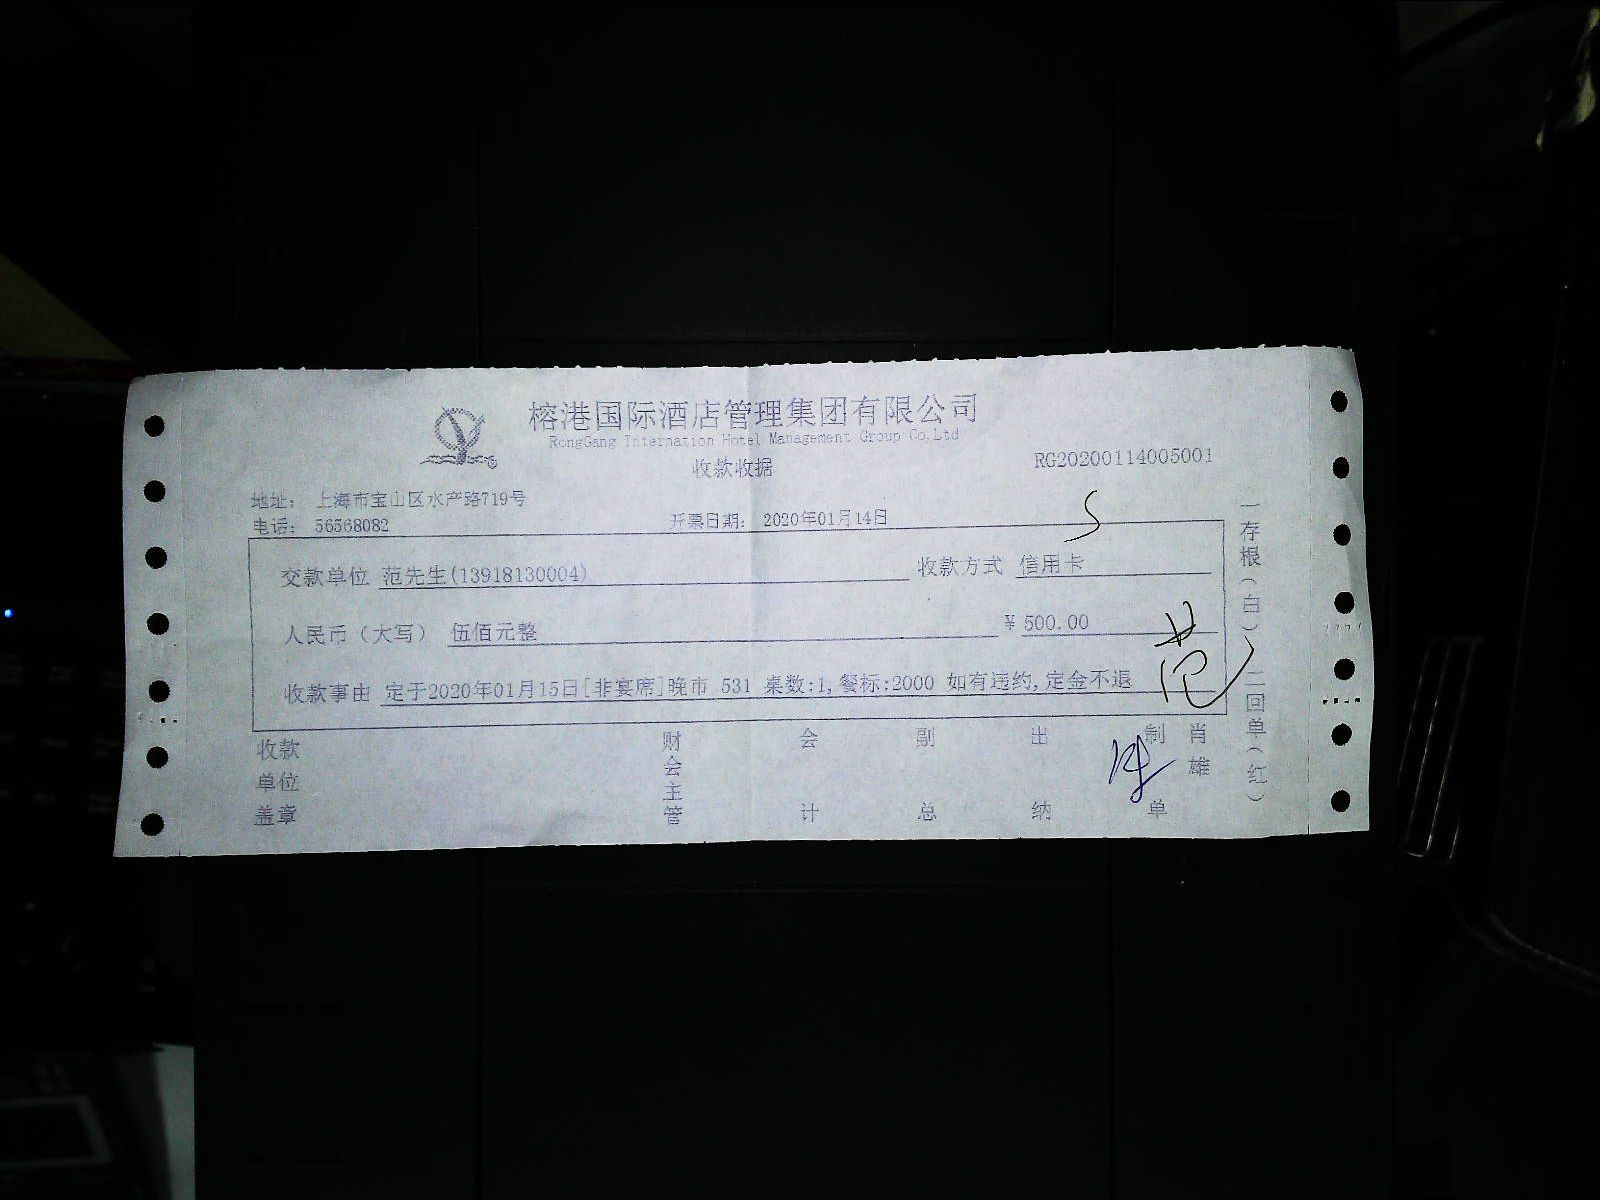 榕港国际酒店管理集团有限公司
RongGang Internation Hotel Management Group Co,Ltd
收款收据
RG20200114005001
地址： 上海市宝山区水产路719号
电话： 56568082
开票日期： 2020年01月14日
交款单位 范先生(13918130004)
收款方式 信用卡
人民币（大写） 伍佰元整
¥ 500.00
收款事由 定于2020年01月15日[非宴席]晚市 531 桌数:1,餐标:2000 如有违约,定金不退
范
收款单位盖章
财会主管
会计
副总
出纳
制单
肖雄
一存根（白） 二回单（红）